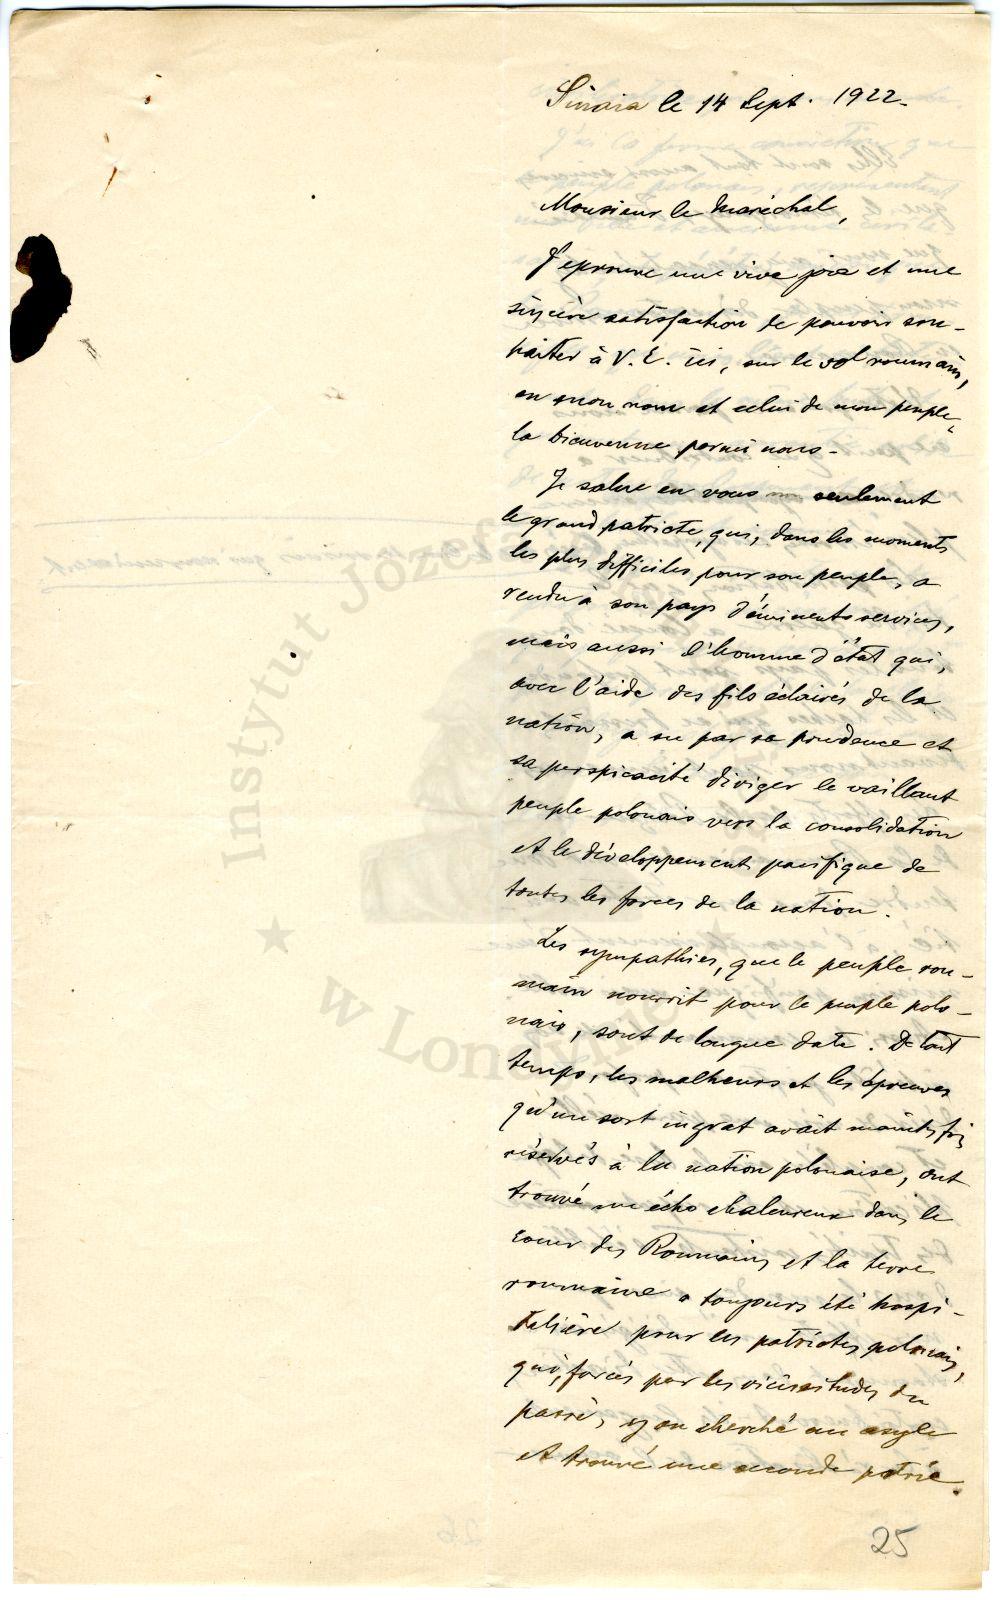 Sinaia le 14 Sept. 1922.
Monsieur le Maréchal,
J'éprouve une vive joie et une
sincère satisfaction de pouvoir sou-
haiter à V. E. ici, sur le sol roumain,
en mon nom et celui de mon peuple,
la bienvenue parmi nous.
Je salue en vous non seulement
le grand patriote, qui, dans les moments
les plus difficiles pour son peuple, a
rendu à son pays d'éminents services,
mais aussi l'homme d'état qui,
avec l'aide des fils éclairés de la
nation, a su par sa prudence et
sa perspicacité diriger le vaillant
peuple polonais vers la consolidation
et le développement pacifique de
toutes les forces de la nation.
Les sympathies, que le peuple rou-
main nourrit pour le peuple polo-
nais, sont de longue date. De tout
temps, les malheurs et les épreuves
qu'un sort ingrat avait maintes fois
réservés à la nation polonaise, ont
trouvé un écho chaleureux dans le
coeur des Roumains et la terre
roumaine a toujours été hospi-
talière pour les patriotes polonais,
qui, forcés par les vicissitudes du
passé, y on cherché un asyle
et trouvé une seconde patrie.
25
Instytut Józefa
w Londynie